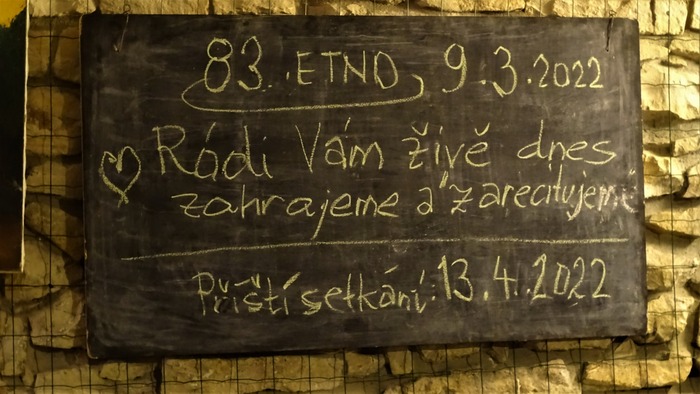 83. ETNO 9.3.2022
Rádi Vám živě dnes
zahrajeme a zarecitujeme
Příští setkání: 13.4.2022